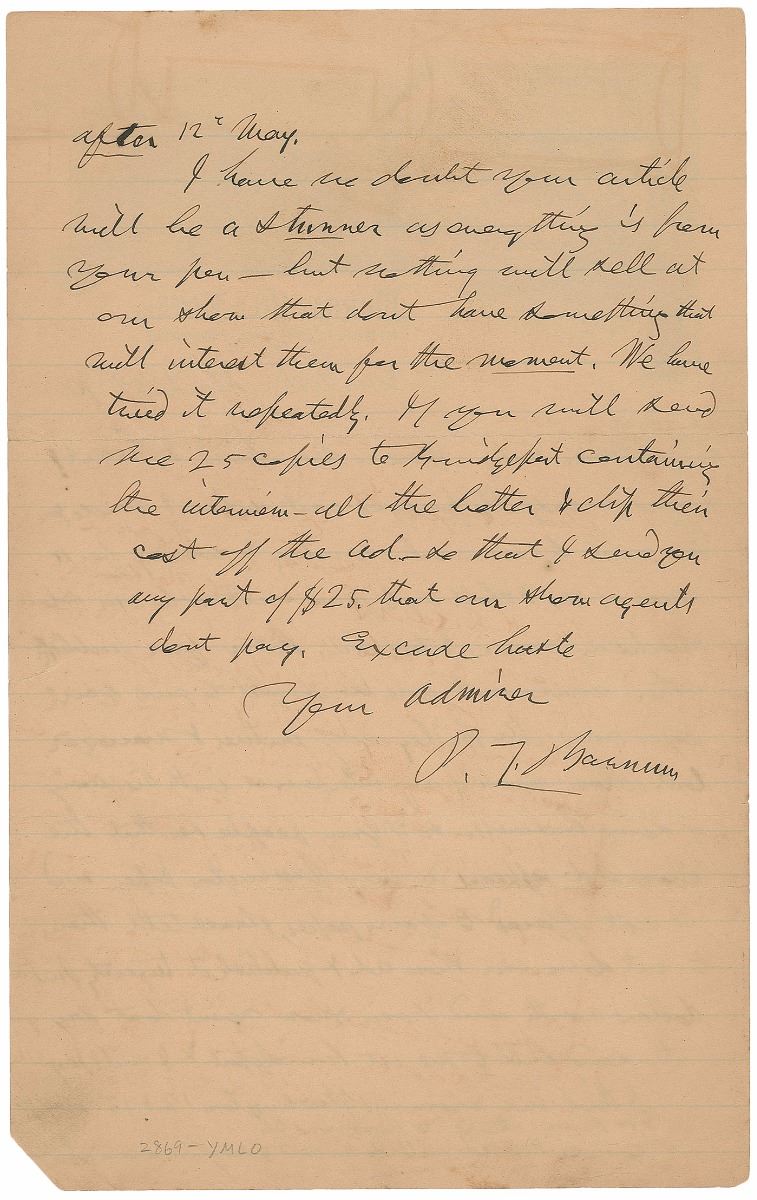 after 12th May.
I have no doubt your article
will be a stunner as everything is from
your pen — but nothing will sell at
our show that dont have something that
will interest them for the moment. We have
tried it repeatedly. If you will send
me 25 copies to Bridgeport containing
the interview — all the better & clip their
cost off the ad — so that I send you
any part of $25. that our show agents
dont pay. Excuse haste
Your admirer
P. T. Barnum
2869-YMLO